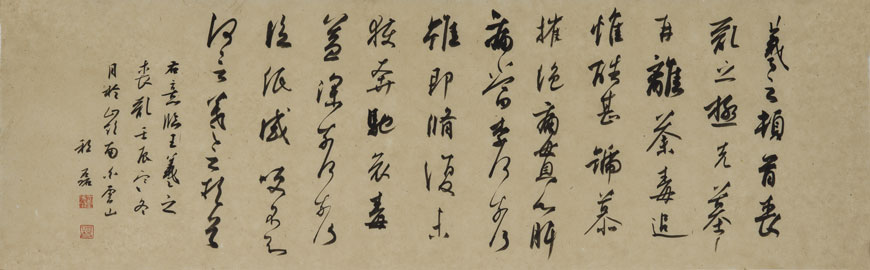 羲之頓首喪
亂之極先墓
再離荼毒追
惟酷甚號慕
摧絕痛貫心肝
痛當奈何奈何
雖即脩復未
獲奔馳哀毒
益深奈何奈何
臨紙感哽不知
何言羲之頓首
右意臨王羲之
喪亂壬辰之冬
月於嶺南小雲山